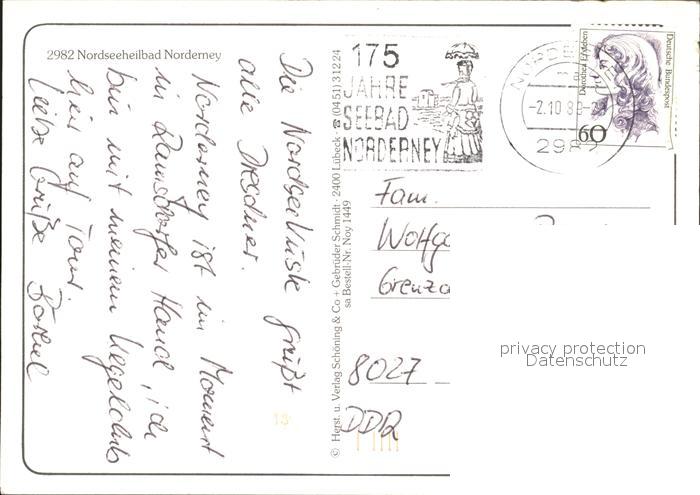 2982 Nordseeheilbad Norderney
Die Nordseeküste grüßt
alle Dresdner.
Norderney ist im Moment
in Hand, ich
bin mit meinem Kegelclub
hier auf Tour.
Liebe Grüße
© Herst. u. Verlag Schöning & Co + Gebrüder Schmidt · 2400 Lübeck · ☎ (0451) 31224
sa Bestell-Nr. Noy 1449
175
JAHRE
SEEBAD
NORDERNEY
-2.10.8
298
Dorothea Erxleben
Deutsche Bundespost
60
Fam.
Wolfg
Grenza
8027
DDR
privacy protection
Datenschutz